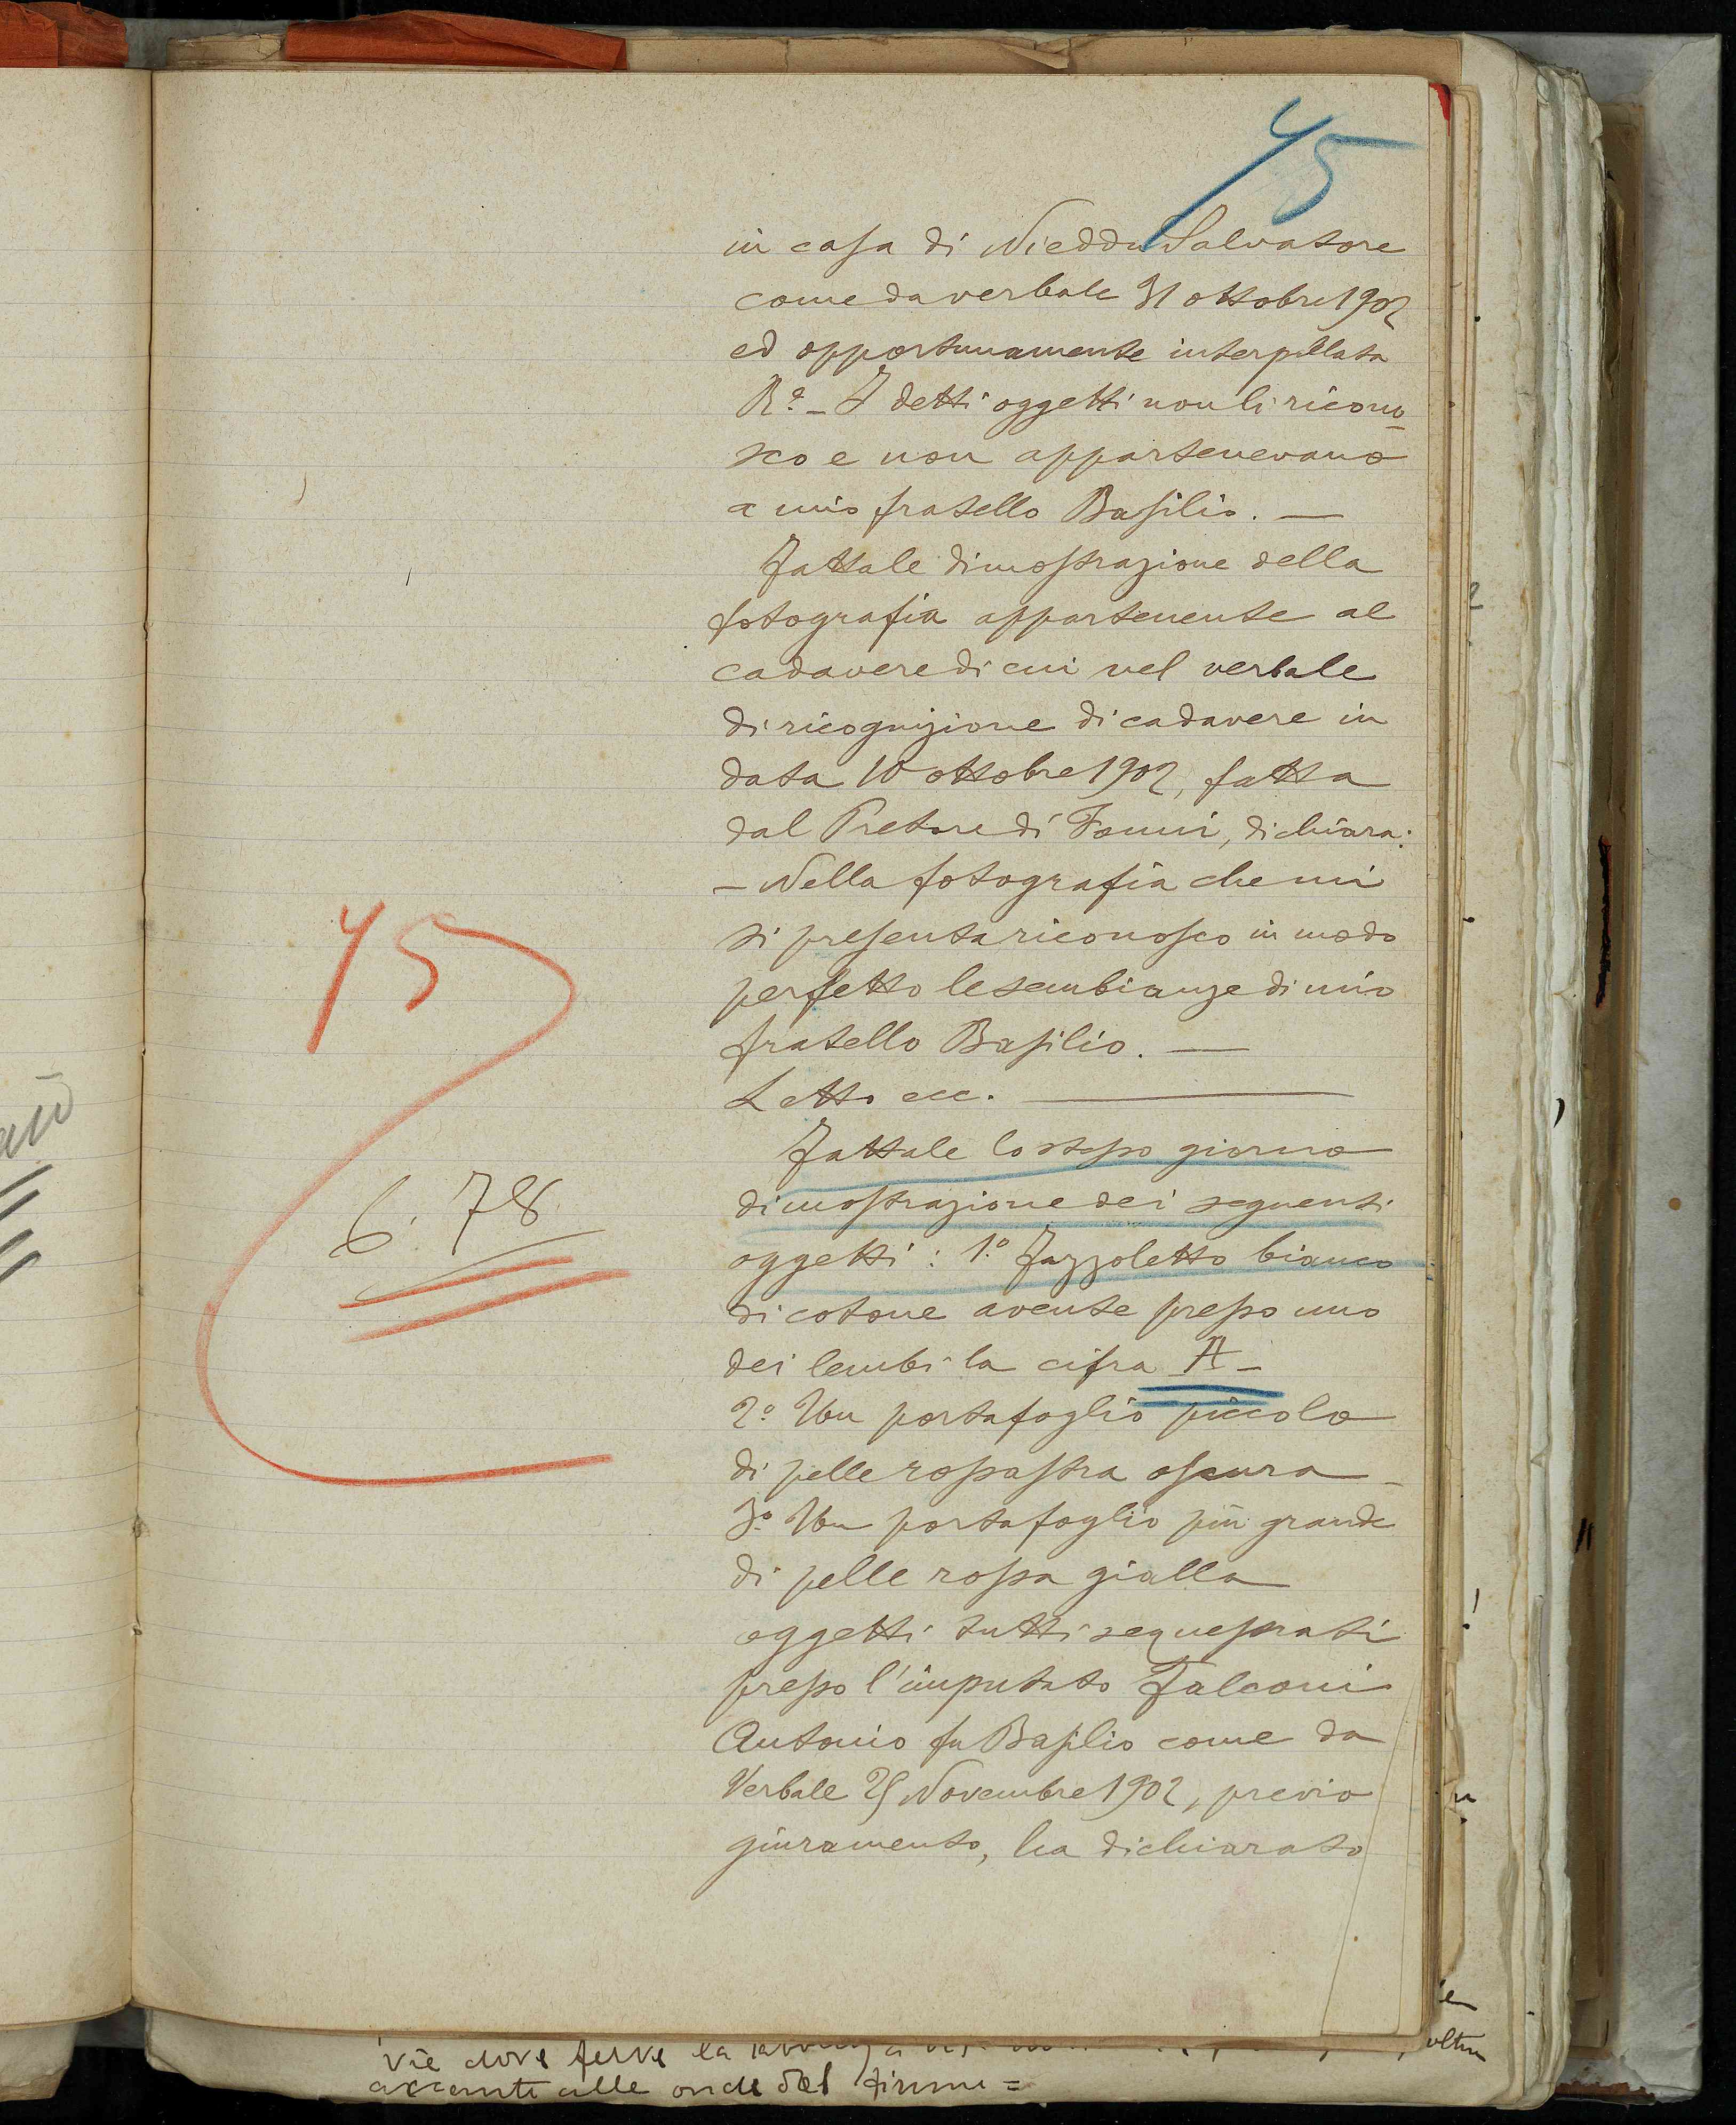 45
in casa di Nieddu Salvatore
come da verbale 31 ottobre 1902
ed opportunamente interpellata
Rª - I detti oggetti non li ricono
sco e non appartenevano
a mio fratello Basilio. —
Fattale dimostrazione della
fotografia appartenente al
cadavere di cui nel verbale
di ricognizione di cadavere in
data 10 ottobre 1902, fatta
dal Pretore di Fonni, dichiara:
- Nella fotografia che mi
si presenta riconosco in modo
perfetto le sembianze di mio
fratello Basilio. —
Letto ecc. —
Fattale lo stesso giorno
dimostrazione dei seguenti
oggetti: 1.º Fazzoletto bianco
di cotone avente presso uno
dei lembi la cifra A -
2º Un portafoglio piccolo
di pelle rossastra oscura -
3º Un portafoglio più grande
di pelle rossa gialla
oggetti tutti sequestrati
presso l'imputato Falconi
Antonio fu Basilio come da
Verbale 25 Novembre 1902, previo
giuramento, ha dichiarato
45
6. 78
vie dove ferve la
oltre
alle onde del fiume =